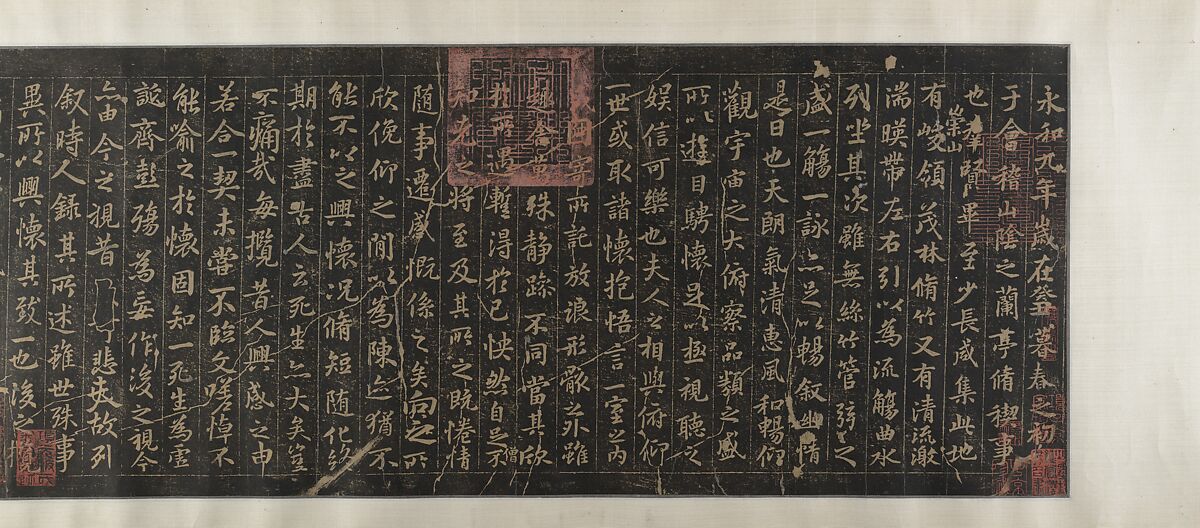 永和九年歲在癸丑暮春之初
于會稽山陰之蘭亭脩稧事
也羣賢畢至少長咸集此地
有崇山峻領茂林脩竹又有清流激
湍暎帶左右引以為流觴曲水
列坐其次雖無絲竹管弦之
盛一觴一詠亦足以暢敘幽情
是日也天朗氣清惠風和暢仰
觀宇宙之大俯察品類之盛
所以遊目騁懷足以極視聽之
娛信可樂也夫人之相與俯仰
一世或取諸懷抱悟言一室之內
因寄所託放浪形骸之外雖
趣舍萬殊靜躁不同當其欣
於所遇蹔得於己怏然自足不
僧
知老之將至及其所之既惓情
隨事遷感慨係之矣向之所
欣俛仰之閒以為陳迹猶不
能不以之興懷況脩短隨化終
期於盡古人云死生亦大矣豈
不痛哉每攬昔人興感之由
若合一契未嘗不臨文嗟悼不
能喻之於懷固知一死生為虛
誕齊彭殤為妄作後之視今
亦由今之視昔悲夫故列
敘時人錄其所述雖世殊事
異所以興懷其致一也後之攬